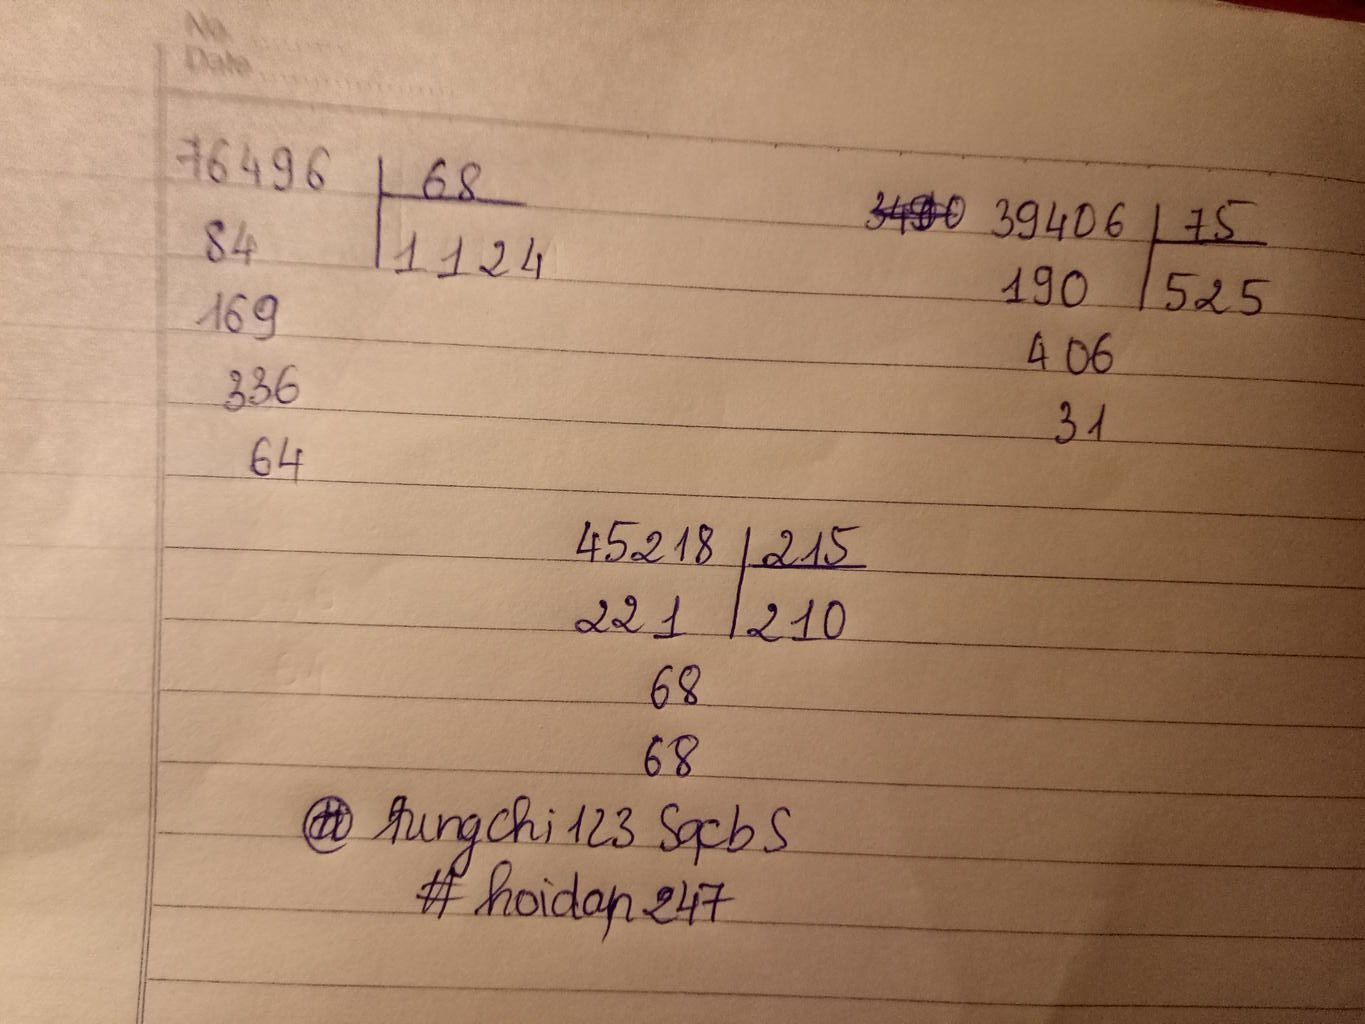 No.
Date
76496 68
84 1124
169
336
64
39406 75
190 525
406
31
45218 215
221 210
68
68
@ tungchi123 SqcbS
# hoidap247